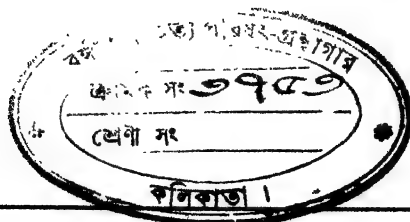 বঙ্গ পরিষৎ-গ্রন্থাগার
ক্রমিক সং ৩৭৫৩
শ্রেণী সং
কলিকাতা ।